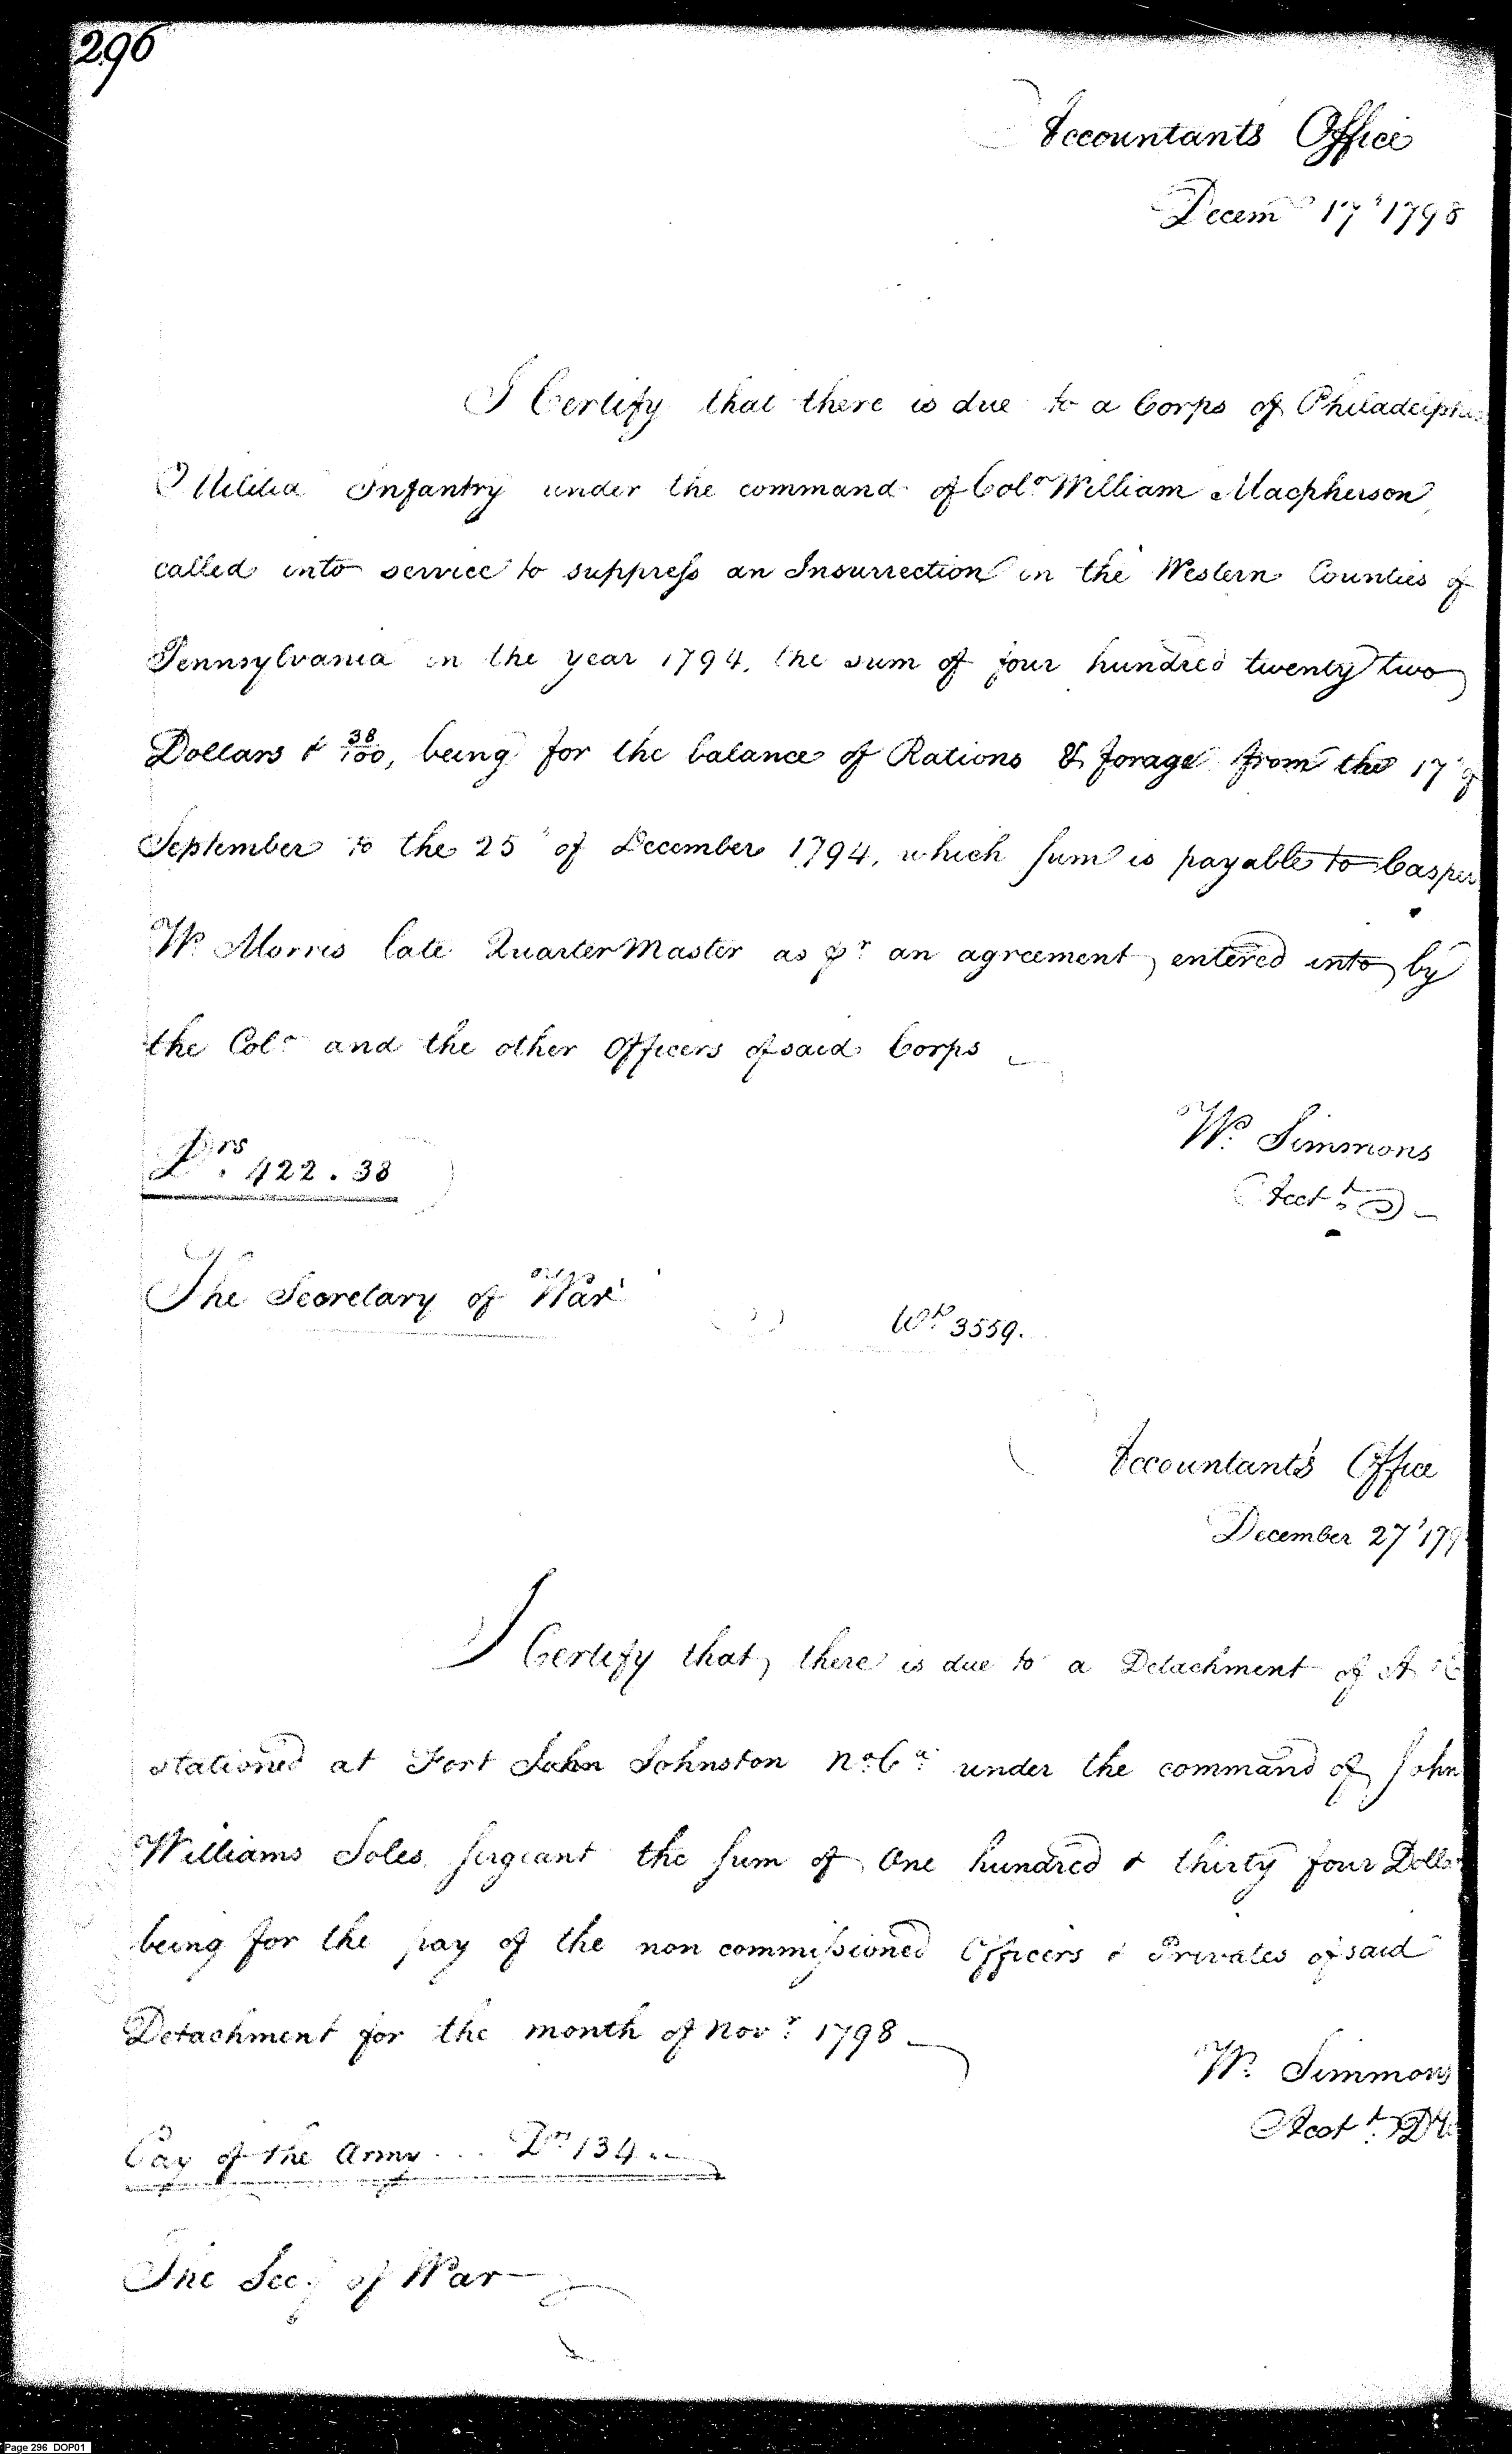 296
Accountants Office
Decem 17 1798
I Certify that there is due to a Corps of Philadelphia
Militia Infantry under the command of Colo William Macpherson
called into service to suppress an Insurrection in the Western Counties of
Pennsylvania in the year 1794, the sum of four hundred twenty two
Dollars & 38/100, being for the balance of Rations & forage from the 17 of
September to the 25 of December 1794, which sum is payable to Casper
W. Morris late Quarter Master as pr an agreement entered into by
the Colo and the other Officers of said Corps
Drs. 422.38
W. Simmons
Acct
The Secretary of War
Wt 3559.
Accountant's Office
December 27 179
I Certify that there is due to a Detachment of
stationed at Fort John Johnston No Ca under the command of John
Williams Soles Sergeant the sum of One hundred & thirty four Dollars
being for the pay of the non commissioned Officers & Privates of said
Detachment for the month of Novr 1798
W. Simmons
Acct
Pay of the Army ... Drs 134..
The Secy of War
Page 296 DOP01